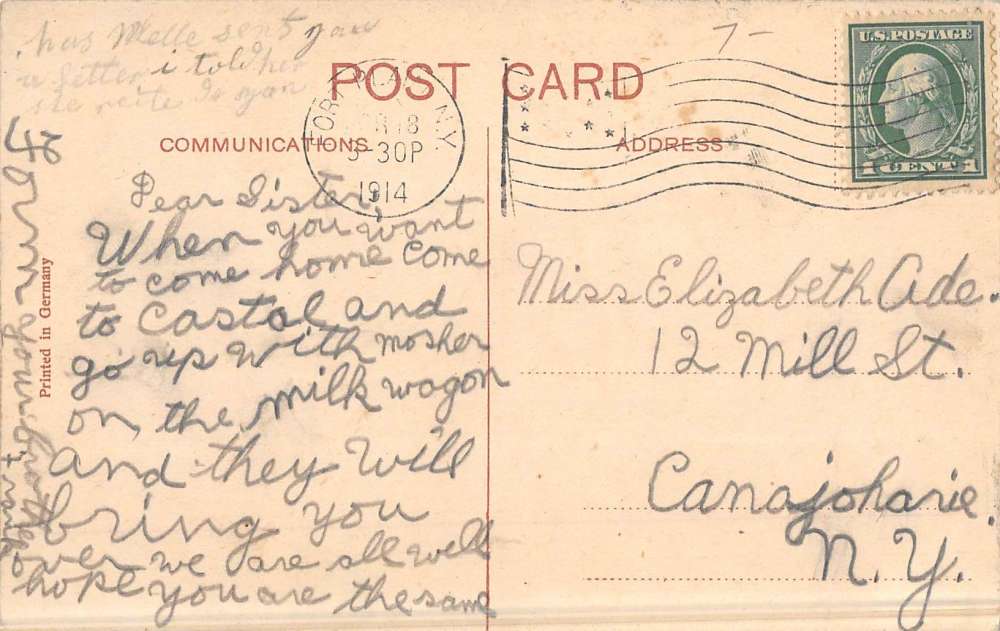 has Melle sent you
a letter i told her
she rite to you
7-
POST CARD
U.S. POSTAGE
1 CENT 1
FORT PLAIN N.Y.
18
5-30P
1914
COMMUNICATIONS
ADDRESS
Dear Sister,
When you want
to come home come
to Castol and
go up with mosher
on the milk wagon
and they will
bring you
over we are all well
hope you are the same
from your brother
Frank
Printed in Germany
Miss Elizabeth Ade.
12 Mill St.
Canajoharie
N. Y.